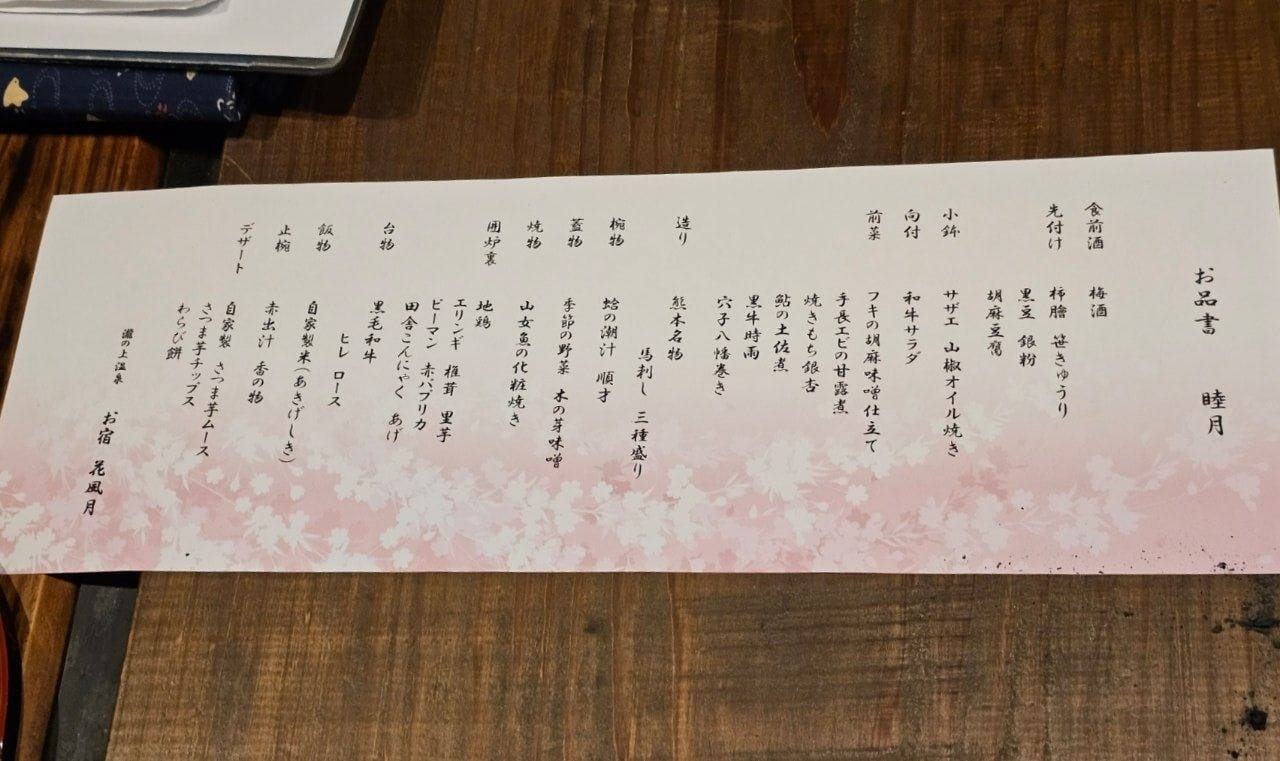 お品書 睦月
食前酒 梅酒
先付け 柿膾 笹きゅうり
黒豆 銀粉
胡麻豆腐
小鉢 サザエ 山椒オイル焼き
向付 和牛サラダ
前菜 フキの胡麻味噌仕立て
手長エビの甘露煮
焼きもち銀杏
鮎の土佐煮
黒牛時雨
穴子八幡巻き
造り 熊本名物
馬刺し 三種盛り
椀物 蛤の潮汁 順才
蓋物 季節の野菜 木の芽味噌
焼物 山女魚の化粧焼き
囲炉裏 地鶏
エリンギ 椎茸 里芋
ピーマン 赤パプリカ
田舎こんにゃく あげ
台物 黒毛和牛
ヒレ ロース
飯物 自家製米(あきげしき)
止椀 赤出汁 香の物
デザート 自家製 さつま芋ムース
さつま芋チップス
わらび餅
瀧の上温泉 お宿 花風月